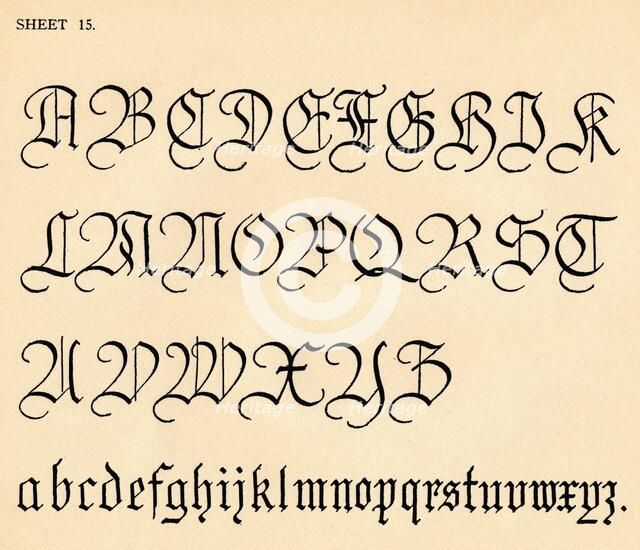 SHEET 15.
A B C D E F G H I K
L M N O P Q R S T
U V W X Y Z
a b c d e f g h i j k l m n o p q r s t u v w x y z.
Heritage Heritage
Heritage Heritage
Heritage Heritage